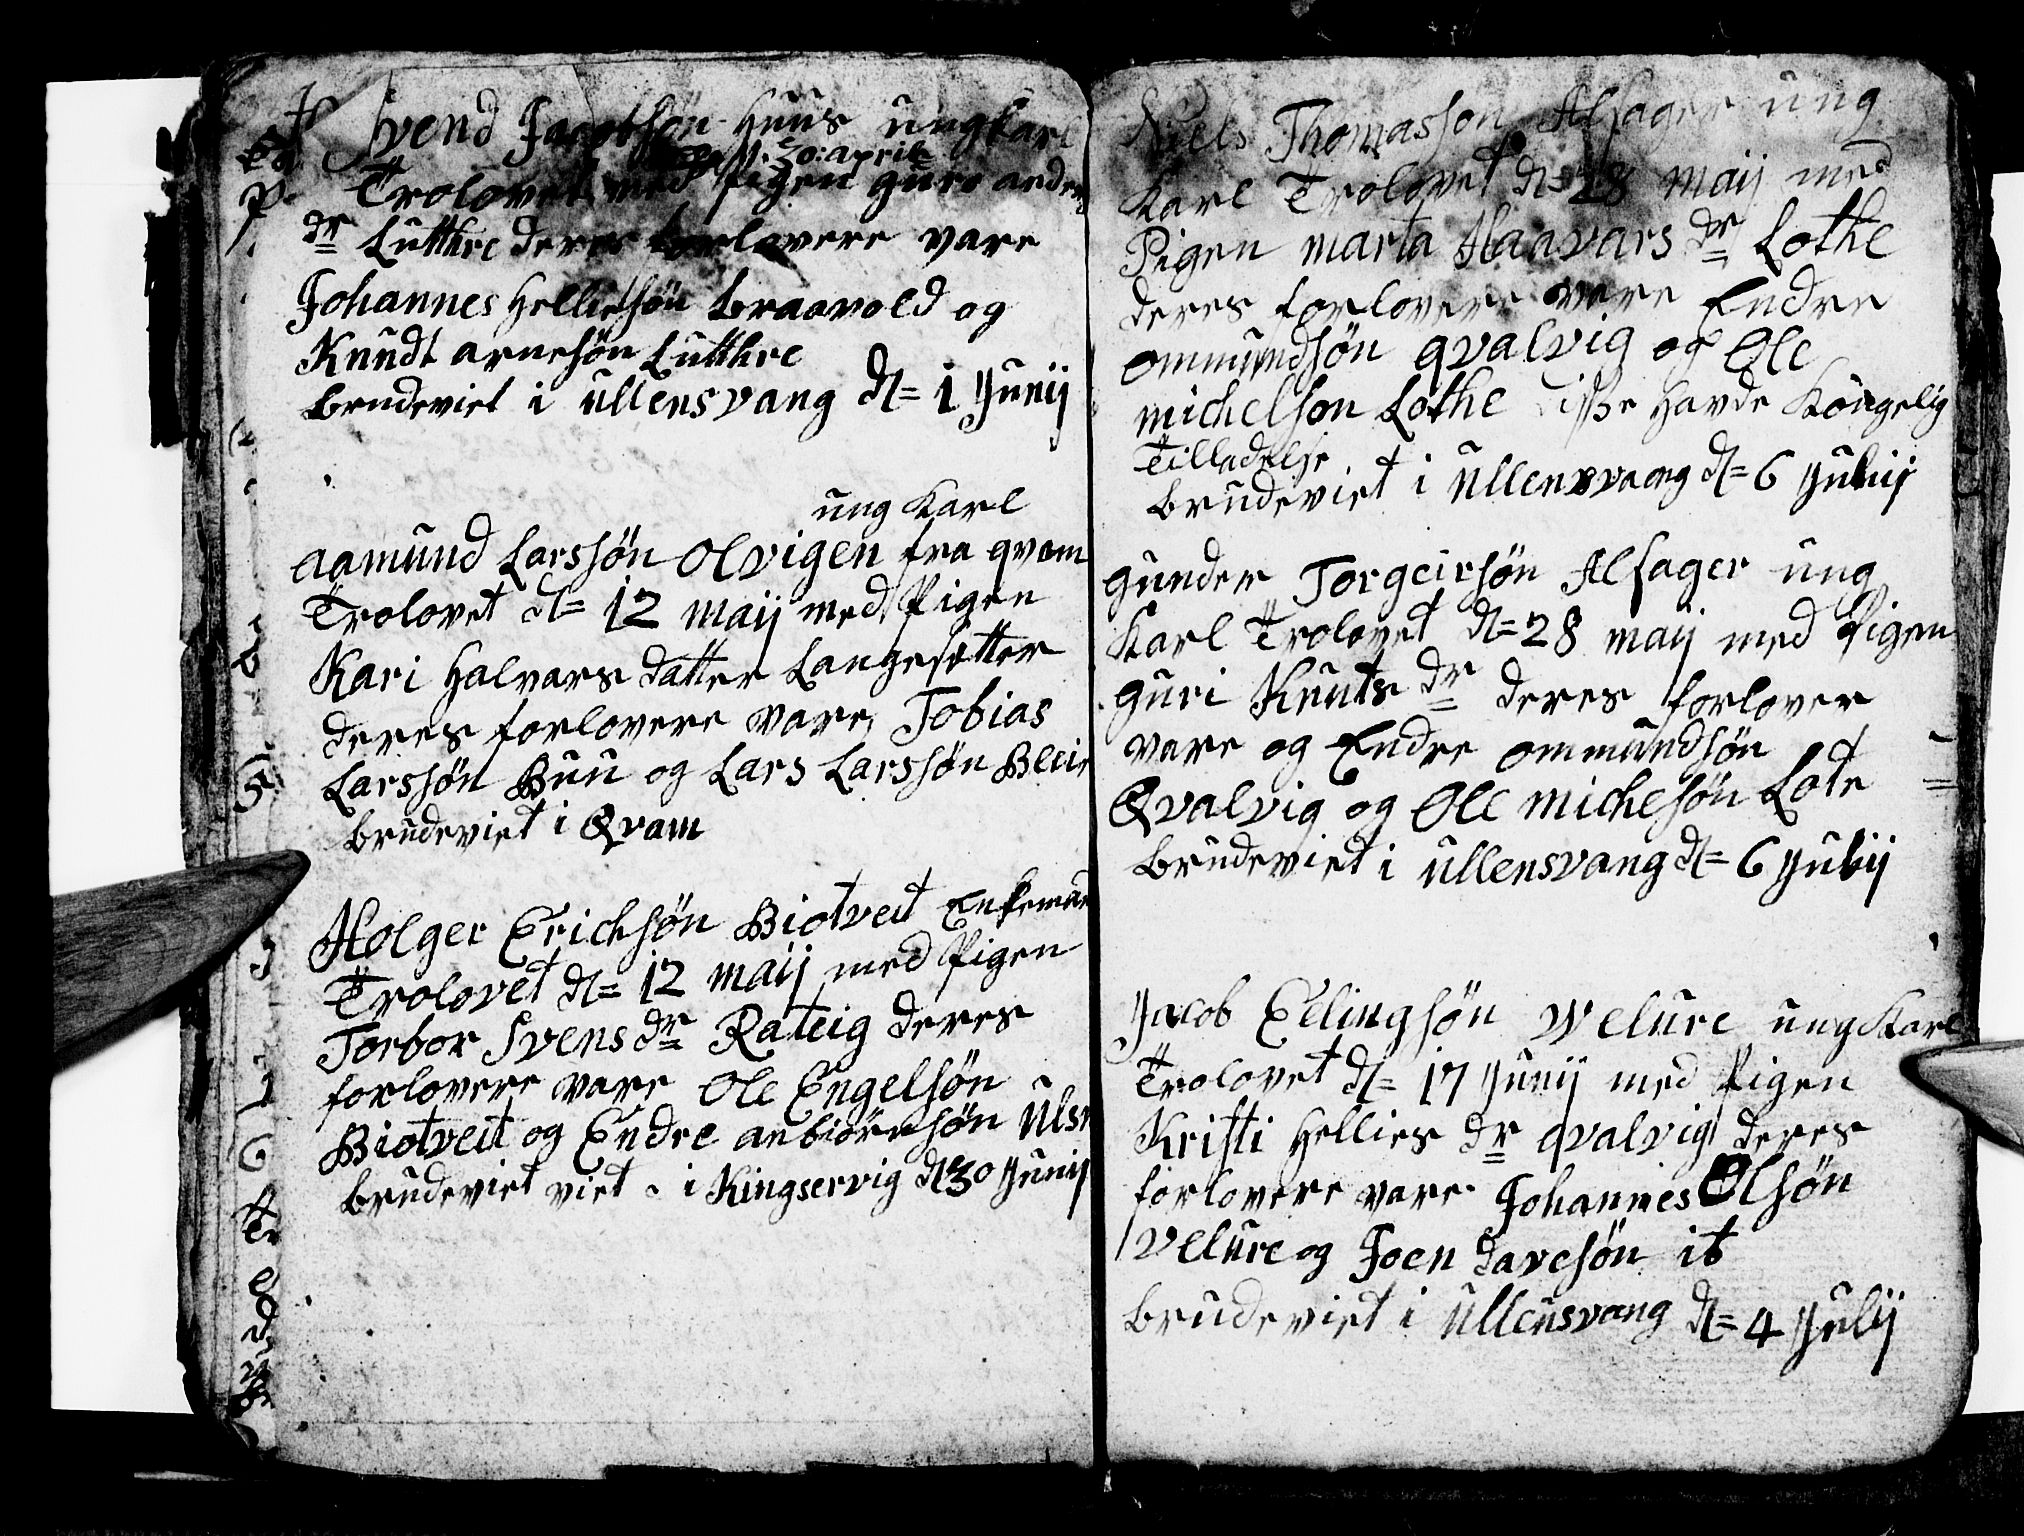 Svend Jacobsøn Huus ungkarl
d. 30: april
Trolovet med Pigen guro anders
dr Lutthre deres forlovere vare
Johannes Hellissøn braavold og
Knudt arnesøn Lutthre
brudeviet i ullensvang d= 1 Junij
ung Karl
aamund Larssøn Olvigen fra qvam
Trolovet d= 12 maij med Pigen
Kari Halvars datter Langesetter
deres forlovere vare Tobias
Larssøn Buu og Lars Larssøn Bleie
brudeviet i Qvam
Holger Erichsøn Biotveit Enkemand
Trolovet d= 12 maij med Pigen
Torbor Svens dr Rateig deres
forlovere vare Ole Engelsøn
Biotveit og Endre anbiørnsøn
brudeviet viet i Kingservig d 30 Junij
Niels Thomassøn Alsager ung
Karl Trolovet d= 28 maij med
Pigen marta Haavars dr Lothe
deres forlovere vare Endre
ommundsøn qvalvig og Ole
michelson Lothe disse havde Kongelig
Tilladelse
brudeviet i ullensvaang d= 6 Julij
gunder Torgeirsøn Alsager ung
Karl Trolovet d= 28 maij med Pigen
guri Knuts dr deres forlover
vare og Endre ommundsøn
Qvalvig og Ole michelsøn Lote
brudeviet i ullensvang d= 6 Julij
Jacob Ellingsøn Welure ung Karl
Trolovet d= 17 Junij med Pigen
Kristi Hellies dr qvalvig deres
forlovere vare Johannes Olsøn
Velure og Joen davesøn ib
brudeviet i ullensvang d= 4 Julij